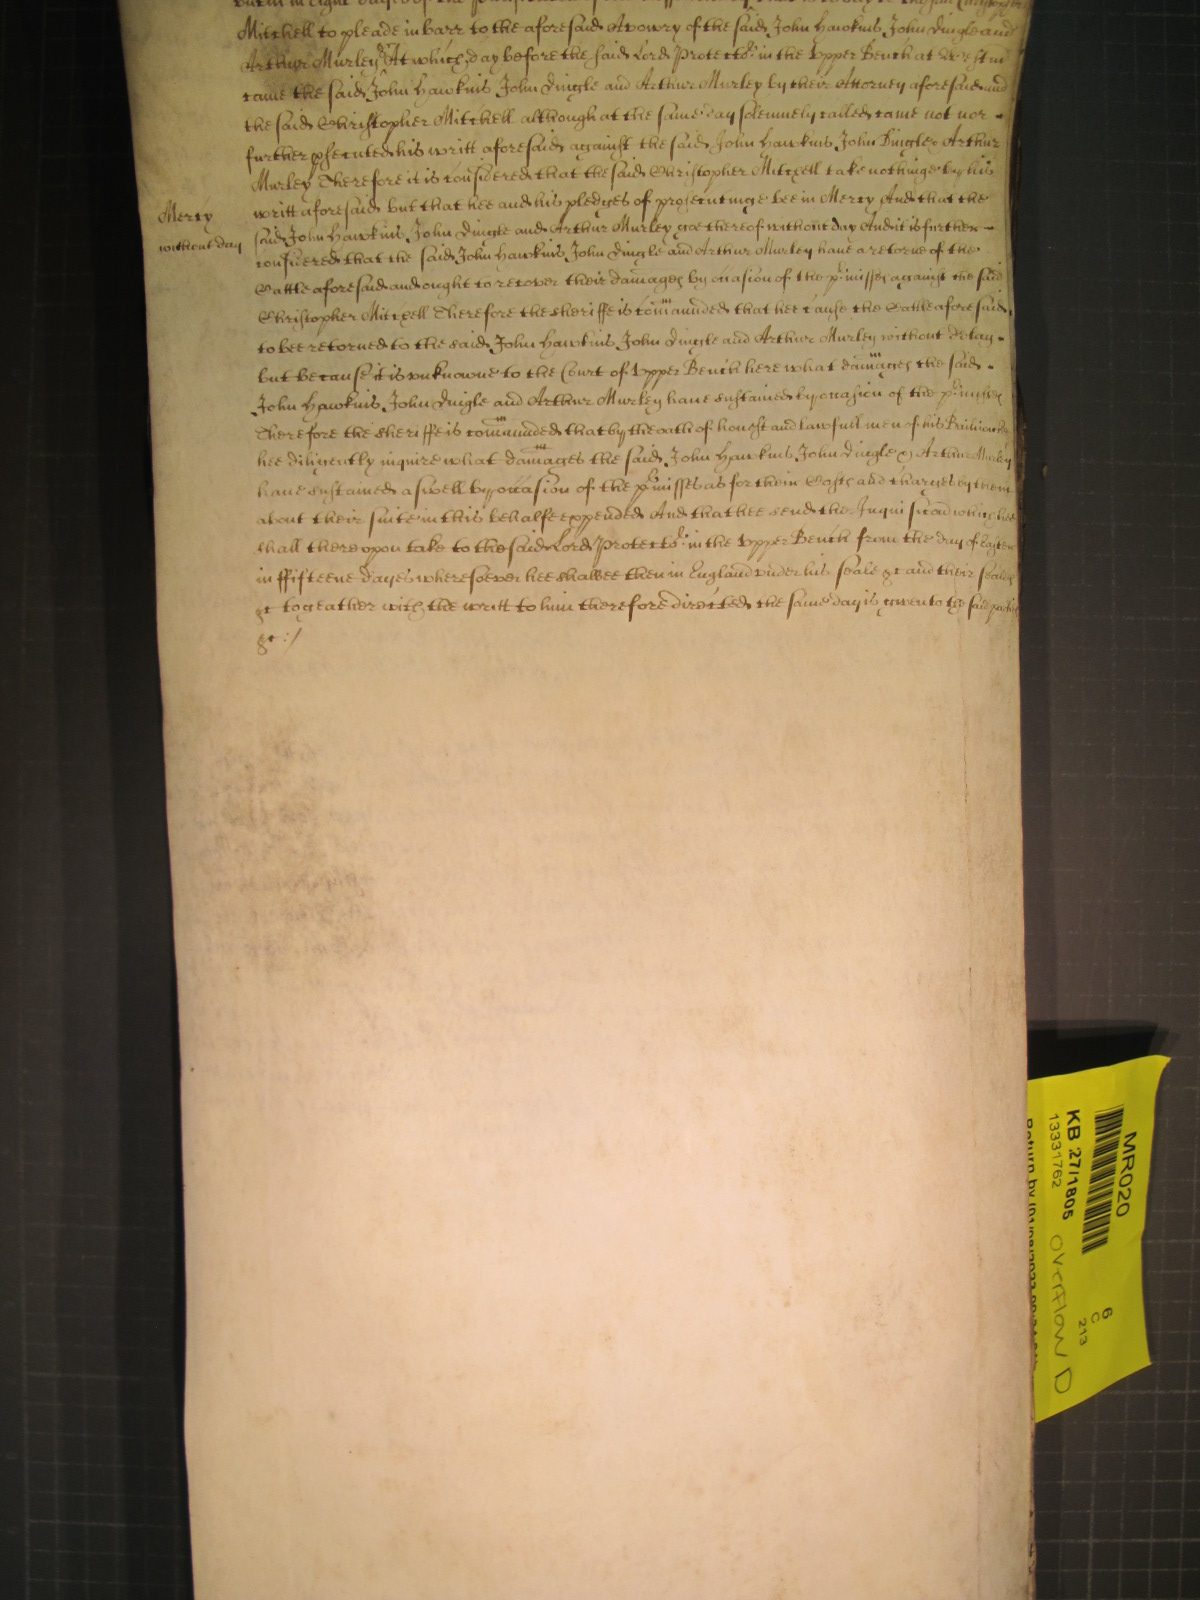 Mitchell to pleade in barr to the aforesaid Avowry of the said John Hawkins John Dingle and
Arthur Murley At which day before the said Lord Protector in the Upper Bench at Westm
came the said John Hawkins John Dingle and Arthur Murley by their Attorney aforesaid and
the said Christopher Mitchell although at the same day solemnely called came not nor
further psecuted his writt aforesaid against the said John Hawkins John Dingle & Arthur
Murley Therefore it is considered that the said Christopher Mitchell take nothinge by his
Mercy
writt aforesaid but that hee and his pledges of prosecutinge bee in Mercy And that the
without day
said John Hawkins John Dingle and Arthur Murley goe thereof without day And it is further
considered that the said John Hawkins John Dingle and Arthur Murley have a retorne of the
Cattle aforesaid and ought to recover their damages by occasion of the pmisses against the said
Christopher Mitchell Therefore the sheriffe is comaunded that hee cause the Cattle aforesaid
to bee retorned to the said John Hawkins John Dingle and Arthur Murley without delay
but because it is unknowne to the Court of Upper Bench here what damages the said
John Hawkins John Dingle and Arthur Murley have sustained by occasion of the pmisses
Therefore the sheriffe is comaunded that by the oath of honest and lawfull men of his Bailiwicke
hee diligently inquire what damages the said John Hawkins John Dingle & Arthur Murley
have sustained aswell by occasion of the pmisses as for their Costs and charges by them
about their suite in this behalfe expended And that hee send the Inquisicon which hee
shall thereupon take to the said Lord Protector in the Upper Bench from the day of Easter
in ffifteene dayes wheresoever hee shalbee then in England under his seale &c and their seales
&c togeather with the writt to him therefore directed the same day is given to the said parties
&c :/
MR020
KB 27/1805
13331762
overflow D
6
C
213